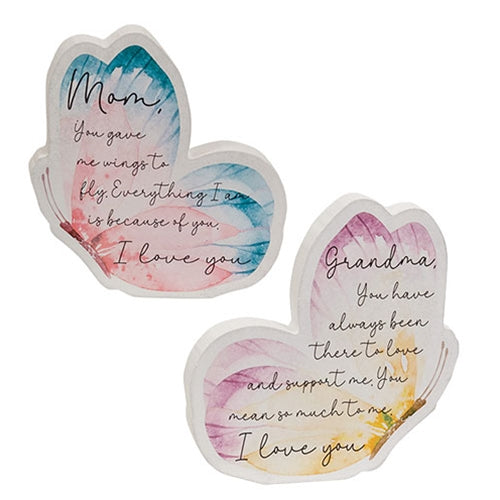 Mom,
You gave
me wings to
fly. Everything I a
is because of you.
I love you
Grandma,
You have
always been
there to love
and support me. You
mean so much to me
I love you